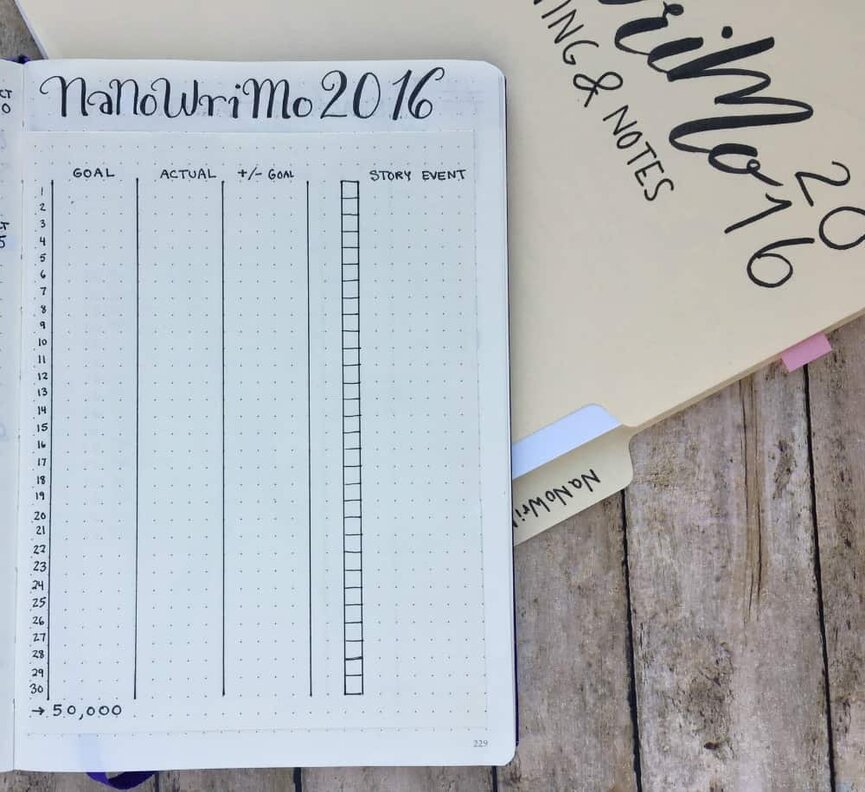 NaNoWriMo 2016
GOAL ACTUAL +/- GOAL STORY EVENT
1
2
3
4
5
6
7
8
9
10
11
12
13
14
15
16
17
18
19
20
21
22
23
24
25
26
27
28
29
30
→ 50,000
229
WriMo 20
ING & NOTES
16
NaNoWriM